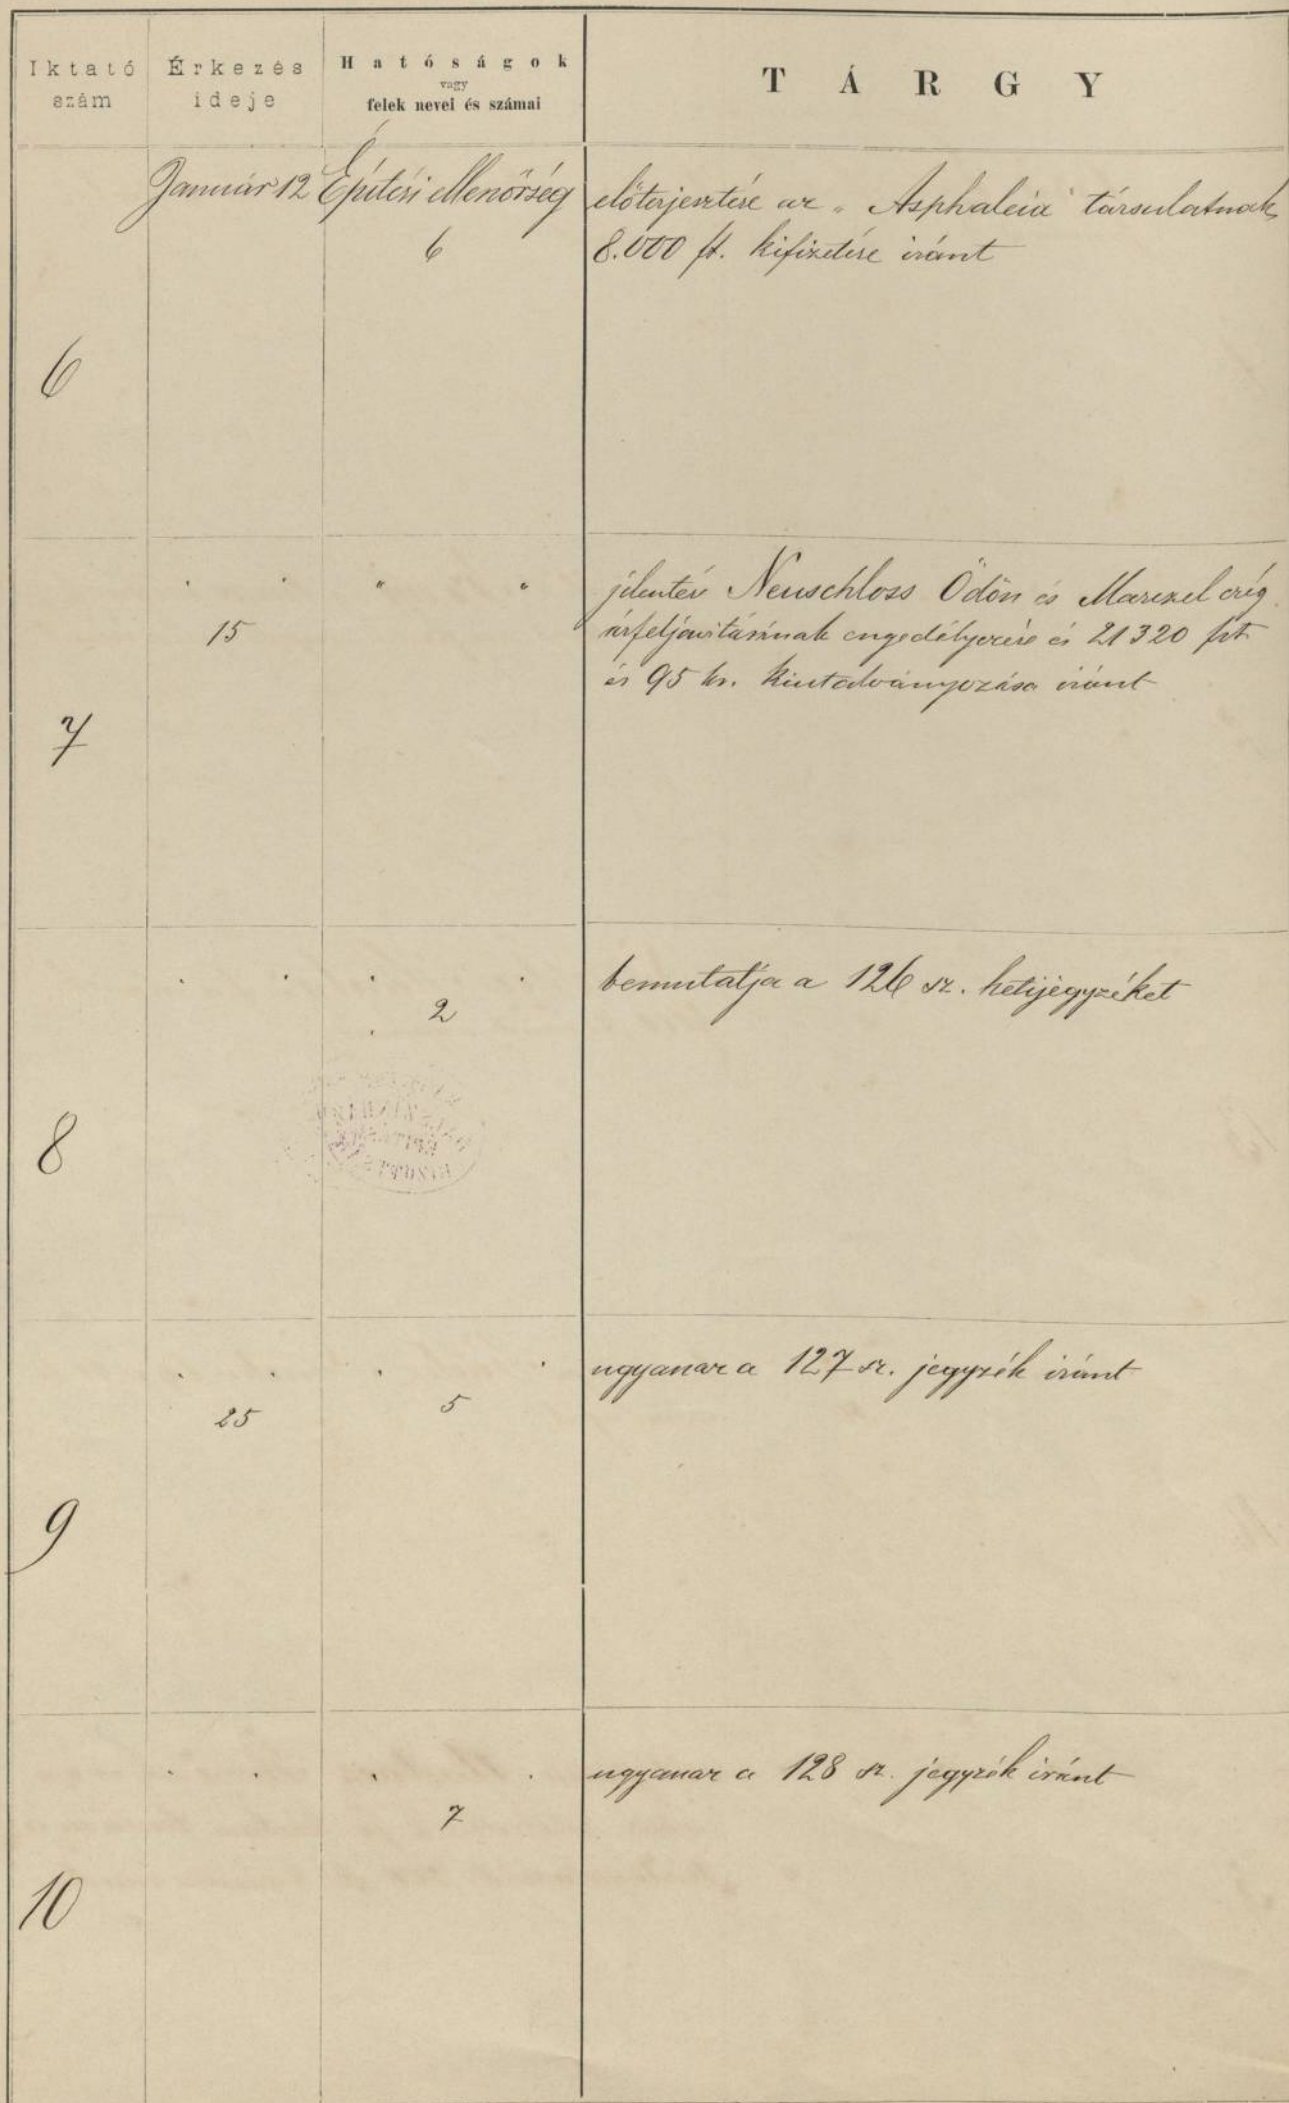 Iktató szám
Érkezés ideje
Hatóságok
vagy
felek nevei és számai
TÁRGY
6
Január 12
Építési ellenőrség
6
előterjesztése az „Asphaleia" társulatnak
8.000 ft. kifizetése iránt
7
" "
15
" "
jelentés Neuschloss Ödön és Marczel czég
árfeljavításának engedélyezése és 21320 frt
és 95 kr. kiutalványozása iránt
8
" "
" "
2
bemutatja a 126 sz. hetijegyzéket
9
" "
25
" "
5
ugyanaz a 127 sz. jegyzék iránt
10
" "
" "
7
ugyanaz a 128 sz. jegyzék iránt